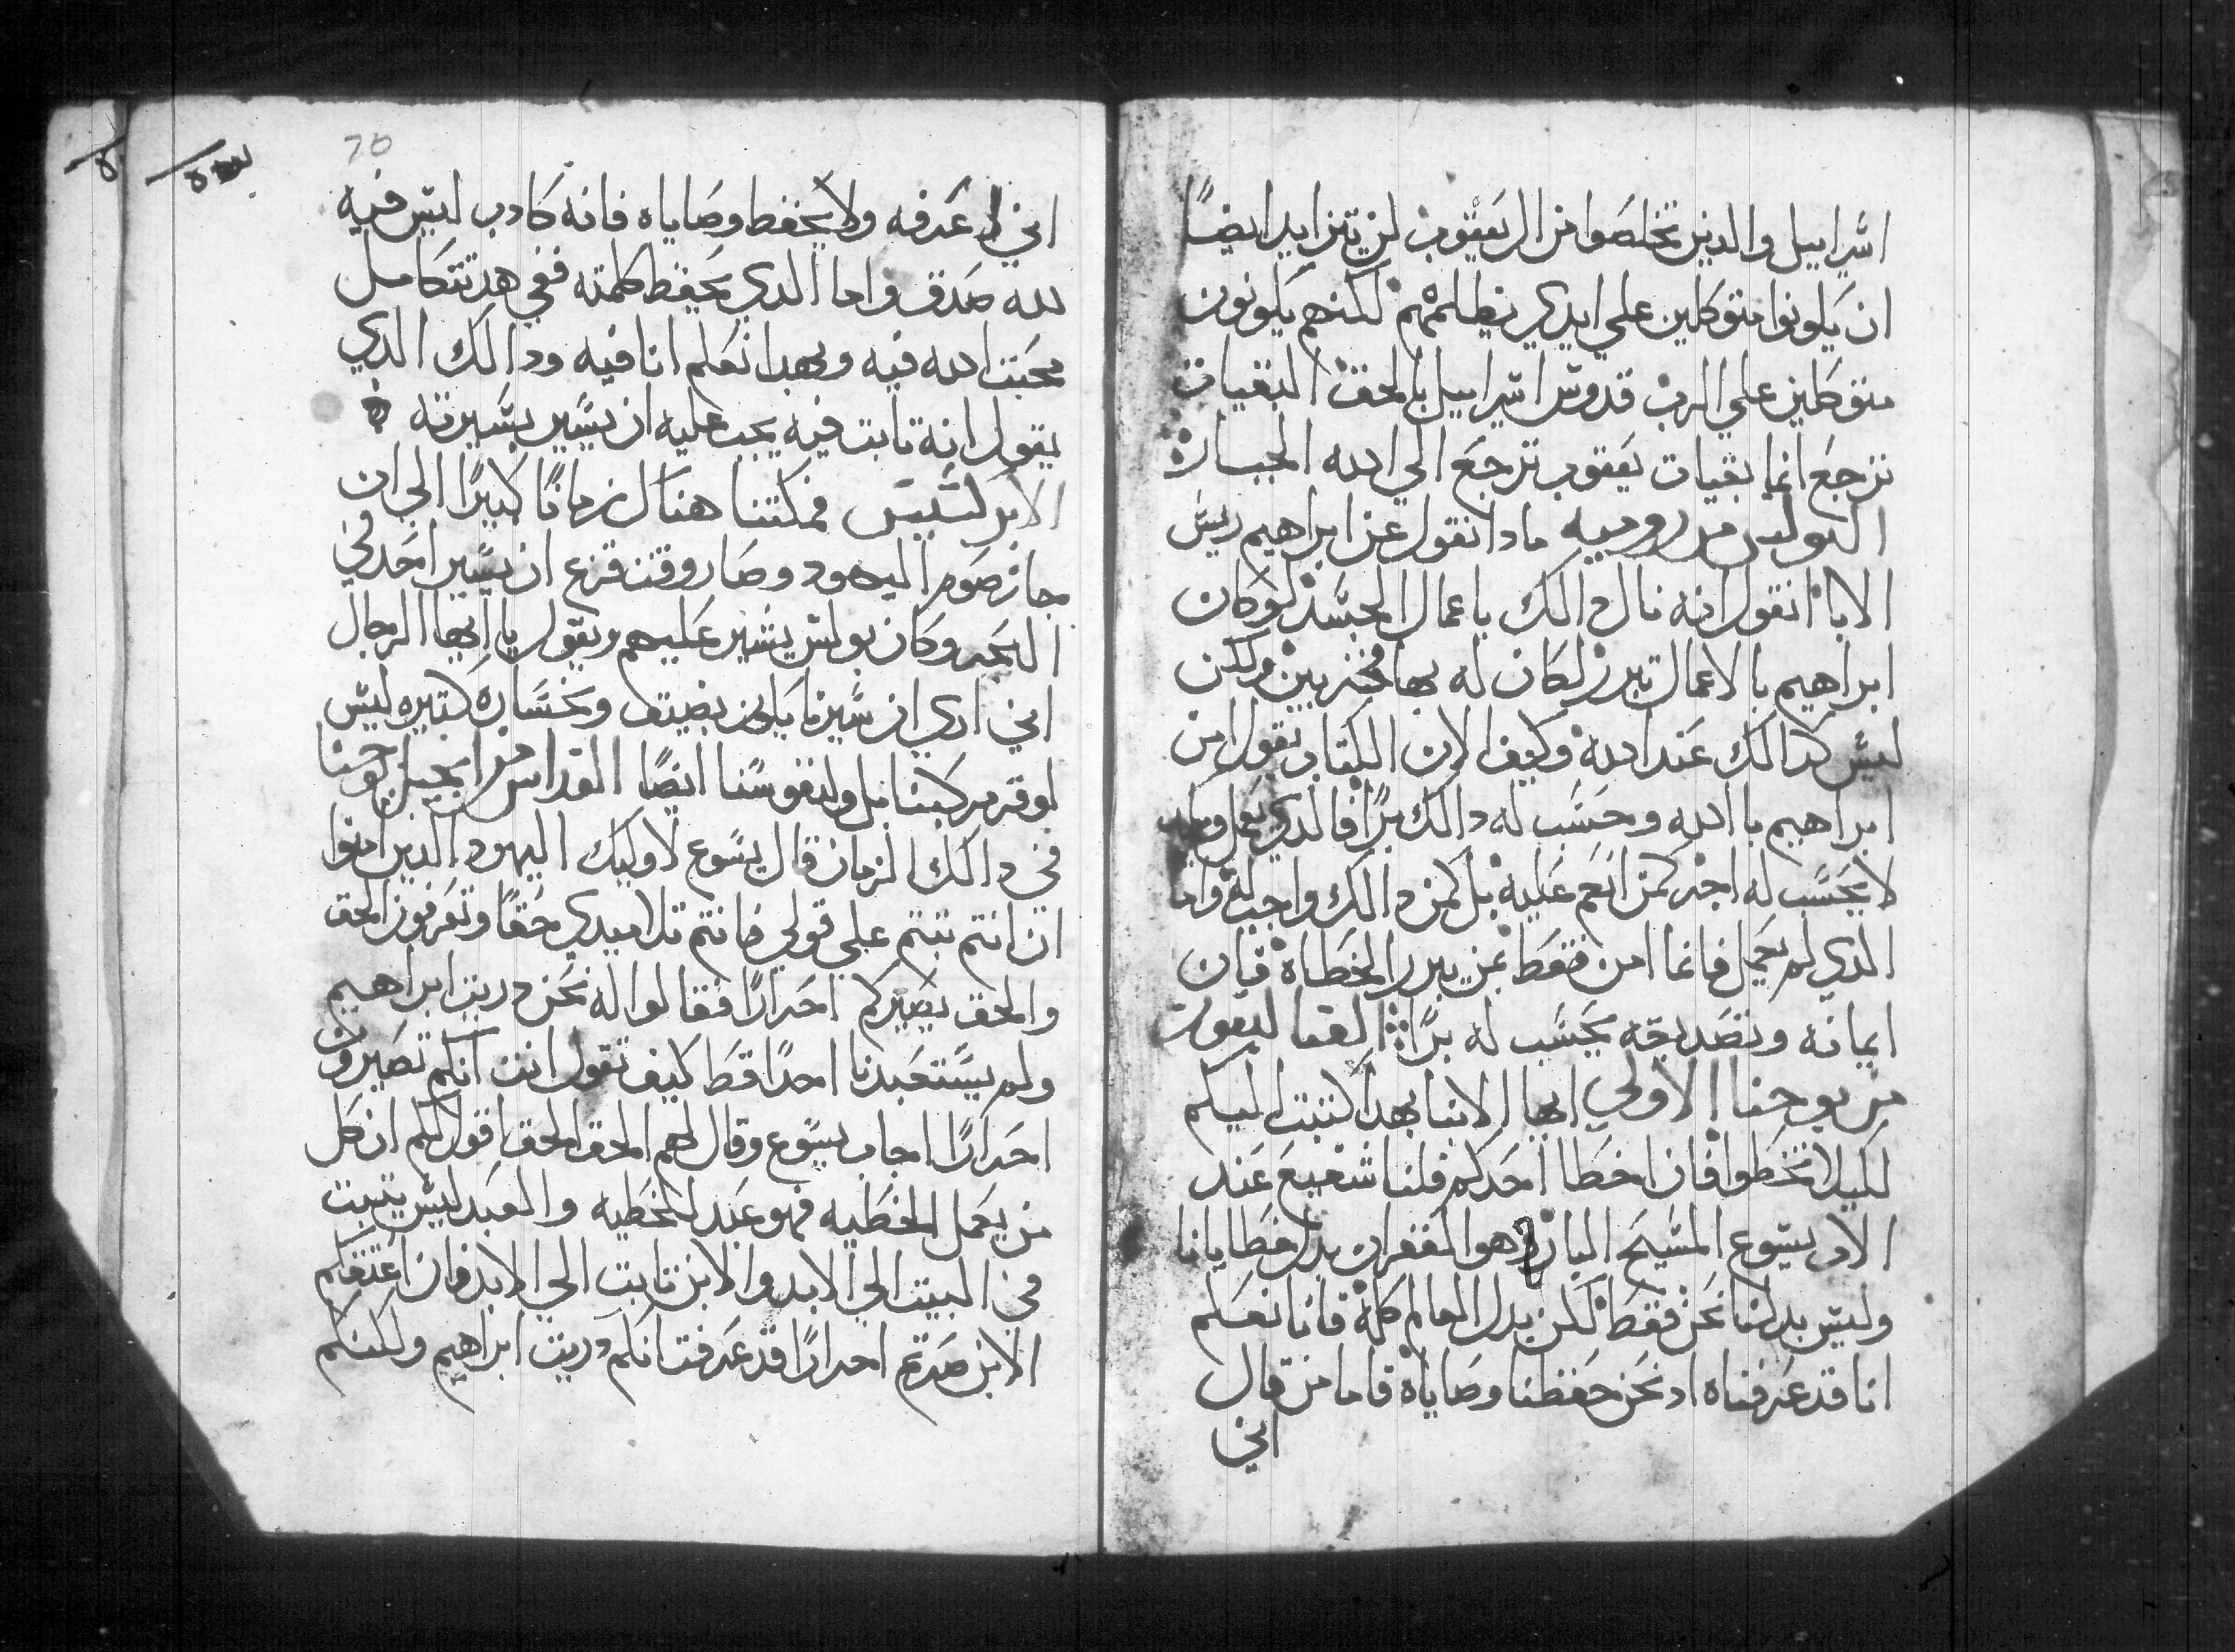 اسراييل والدين تخلصوا من ال يعقوب لن تتزايد ايضًا
ان يكونوا متوكلين علي ايدي يظلمهم لكنهم يكونون
متوكلين علي الرب قدوس اسراييل بالحق البقيات
ترجع انما بقيات يعقوب ترجع الي الله الجباره
البولس من روميه مادا نقول عن ابراهيم ريس
الابا انقول انه نال دالك باعمال الجسد لو كان
ابراهيم بالاعمال تبرر لكان له بها فخر بين ولكن
ليس كدالك عند الله وكيف الان الكتاب يقول امن
ابراهيم بالله وحسب له دالك برًا فالدي يعمل
لا يحسب له اجر كمن انعم عليه بل كمن دالك واجب له واما
الدي لم يعمل فانما امن فقط بمن يبرر الخطاه فان
ايمانه وتصديقه يحسب له برًا القتاليقون
من يوحنا الاولي ايها الابنا بهدا كتبت اليكم
لكيلا تخطوا فان اخطا احدكم فلنا شفيع عند
الاب يسوع المسيح البار وهو الغفران بدل خطايانا
وليس بدلنا نحن فقط لكن بدل العالم كله فانا نعلم
انا قد عرفناه اد نحن حفظنا وصاياه فاما من قال
اني
70
اني اعرفه ولا يحفظ وصاياه فانه كادب ليس فيه
لله صدق واما الدي يحفظ كلمته ففي هد تتكامل
محبت الله فيه وبهدا نعلم انا فيه ودالك الدي
يقول انه تابت فيه يجب عليه ان يسير بسيرته
الابركسيس فمكتنا هناك زمانًا كبيرًا الي ان
جاز صوم اليهود وصار وقت فزع ان يسير احد في
البحر وكان بولس يشير عليهم ويقول يا ايها الرجال
اني اري ان سيرنا يكون بضيق وبخساره كتيره ليس
لوقر مركبنا بل ولنفوسنا ايضًا القداس من انجيل يوحنا
في دالك الزمان قال يسوع لاوليك اليهود الدين امنوا
ان انتم تبتم علي قولي فانتم تلاميدي حقًا وتعرفون الحق
والحق يصيركم احرارًا فقالوا له نحن دريت ابراهيم
ولم يستعبدنا احدًا قط كيف تقول انت انكم تصيرون
احرارًا اجاب يسوع وقال لهم الحق الحق اقول لكم ان كل
من يعمل الخطيه فهو عبد للخطيه والعبد ليس يتبت
في البيت الي الابد والابن تابت الي الابد فان اعتقكم
الابن صرتم احرارًا قد عرفت انكم دريت ابراهيم ولكنكم